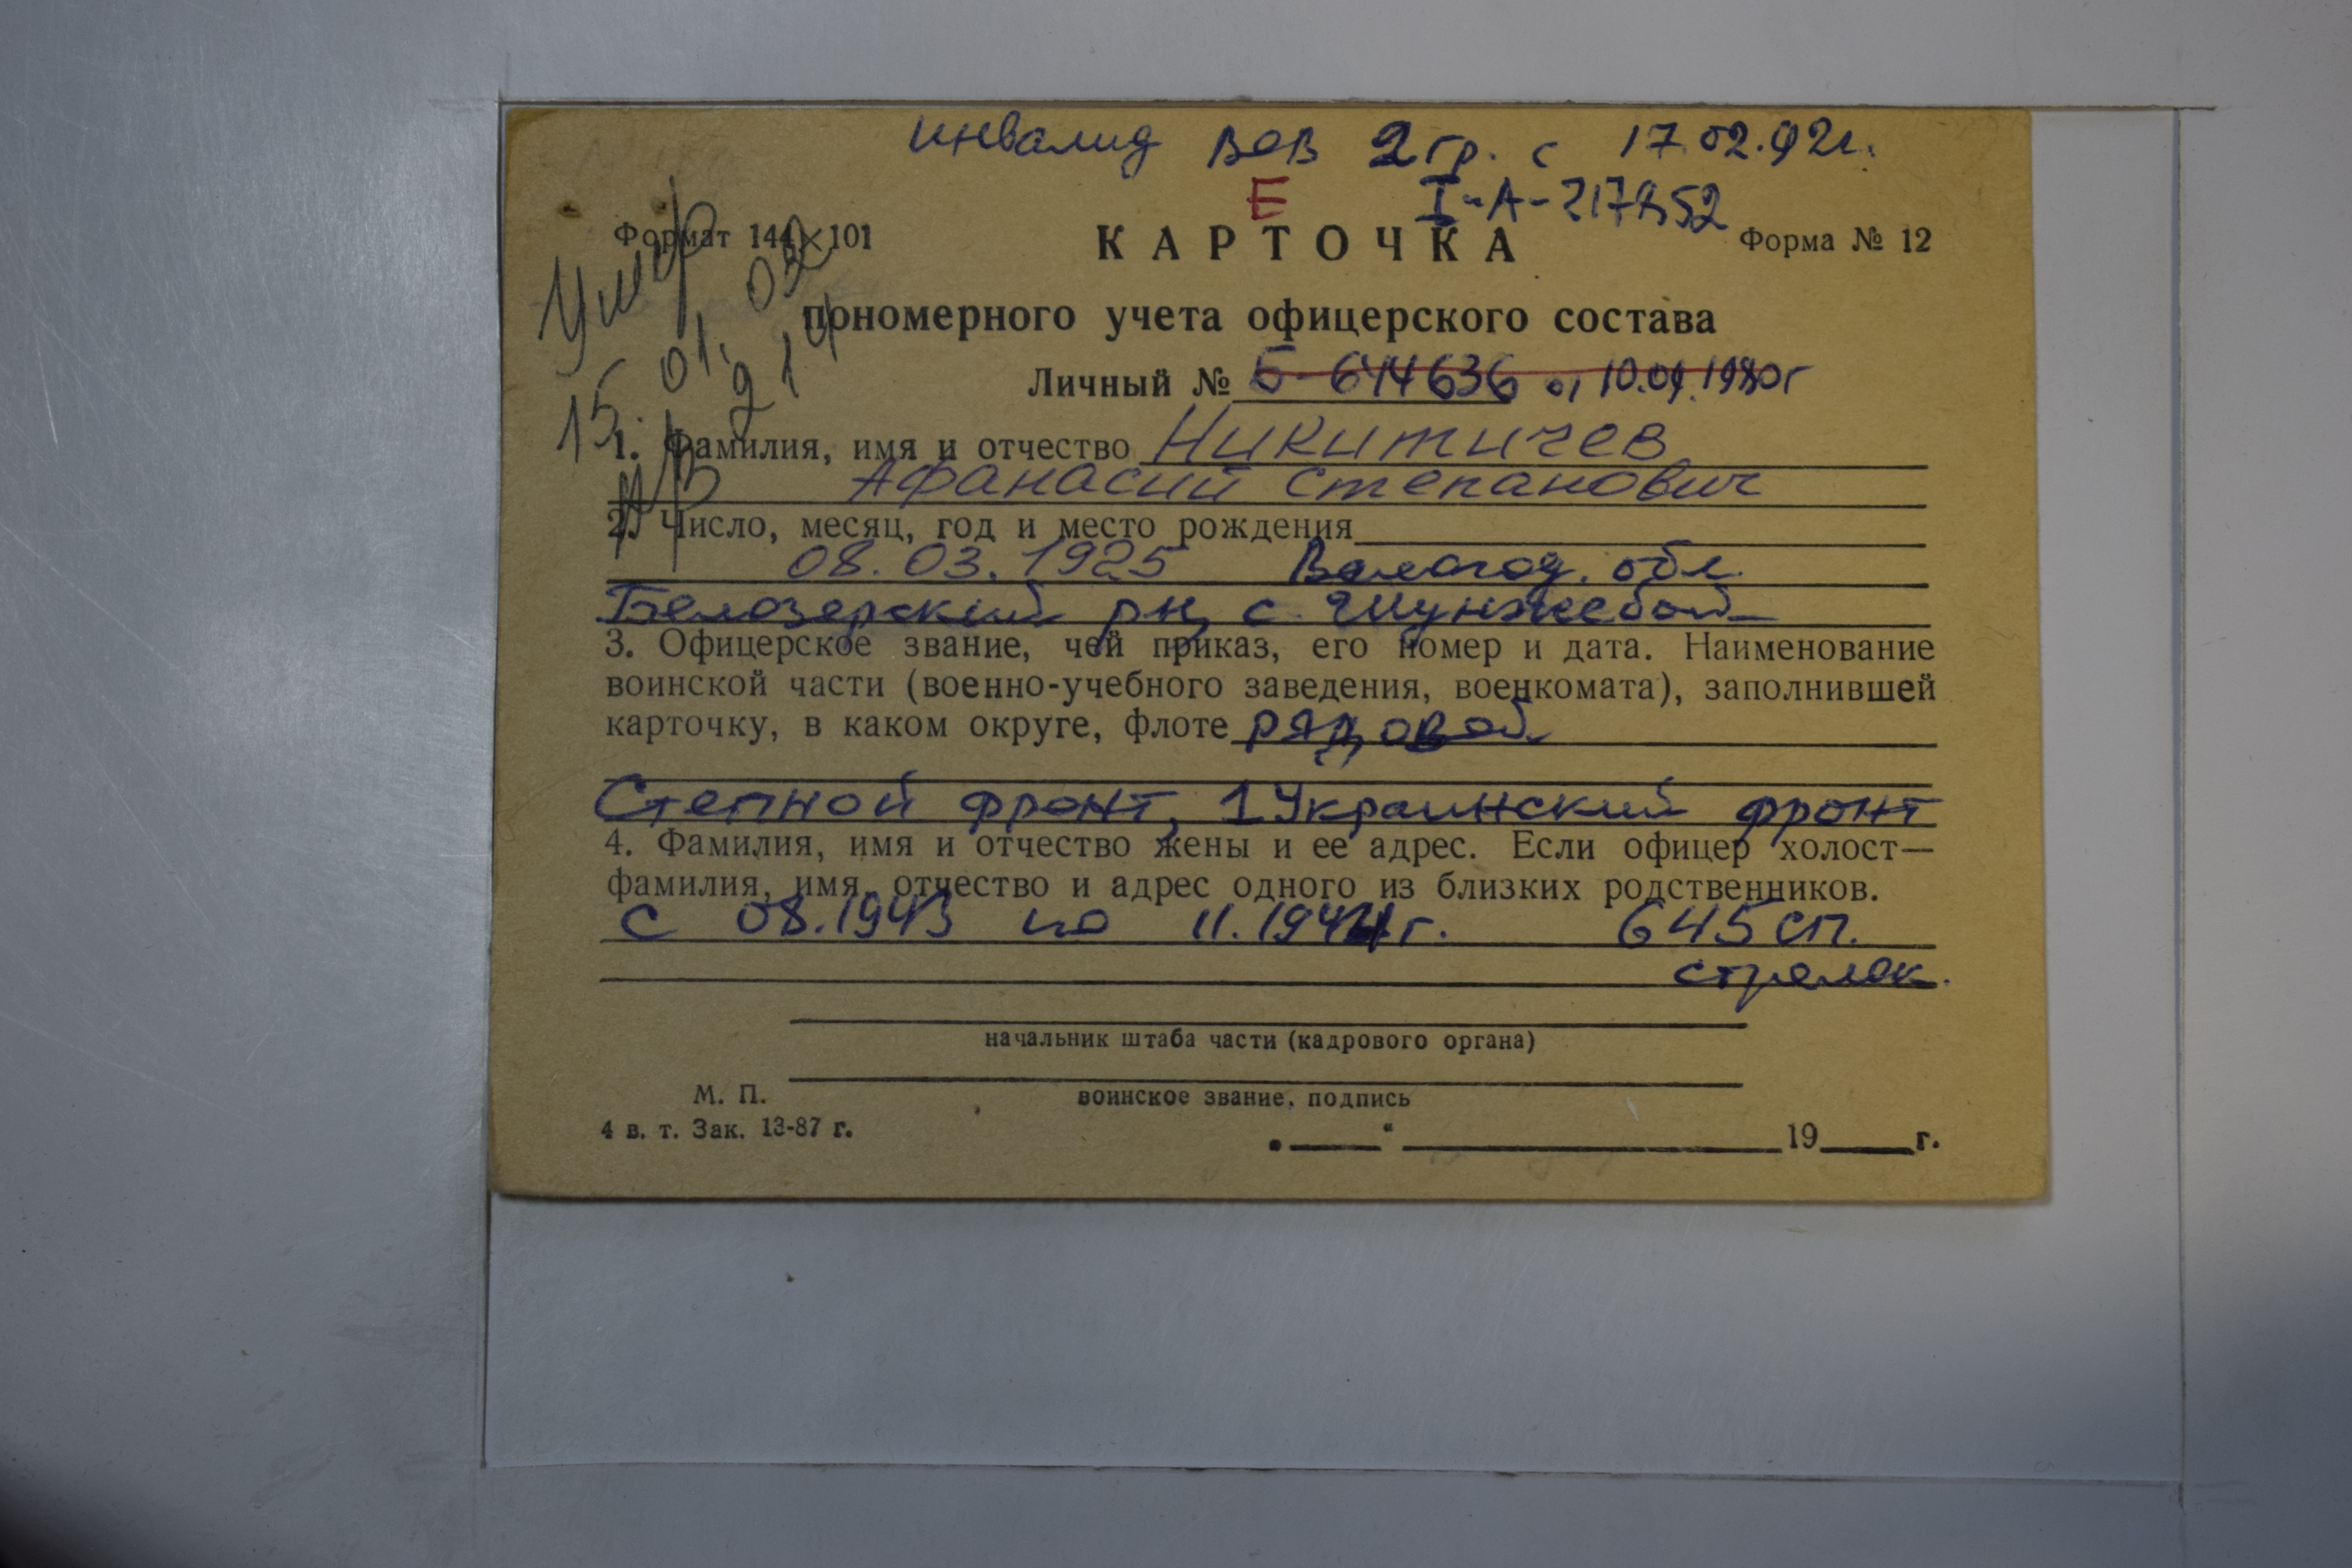 инвалид ВОВ 2 гр. с 17.02.92г.
Е I-А-217852
Формат 144×101 КАРТОЧКА Форма № 12
Умер
15.01.03
пономерного учета офицерского состава
Личный № Б-644636 от 10.09.1980г
1. Фамилия, имя и отчество Никитичев
Афанасий Степанович
2. Число, месяц, год и место рождения
08.03.1925 Вологод. обл.
Белозерский рн, с.
3. Офицерское звание, чей приказ, его номер и дата. Наименование
воинской части (военно-учебного заведения, военкомата), заполнившей
карточку, в каком округе, флоте рядовой
Степной фронт, 1 Украинский фронт
4. Фамилия, имя и отчество жены и ее адрес. Если офицер холост—
фамилия, имя, отчество и адрес одного из близких родственников.
с 08.1943 по 11.1944г. 645 сп.
стрелок.
начальник штаба части (кадрового органа)
М. П.
воинское звание, подпись
4 в. т. Зак. 13-87 г.
„ “ 19 г.